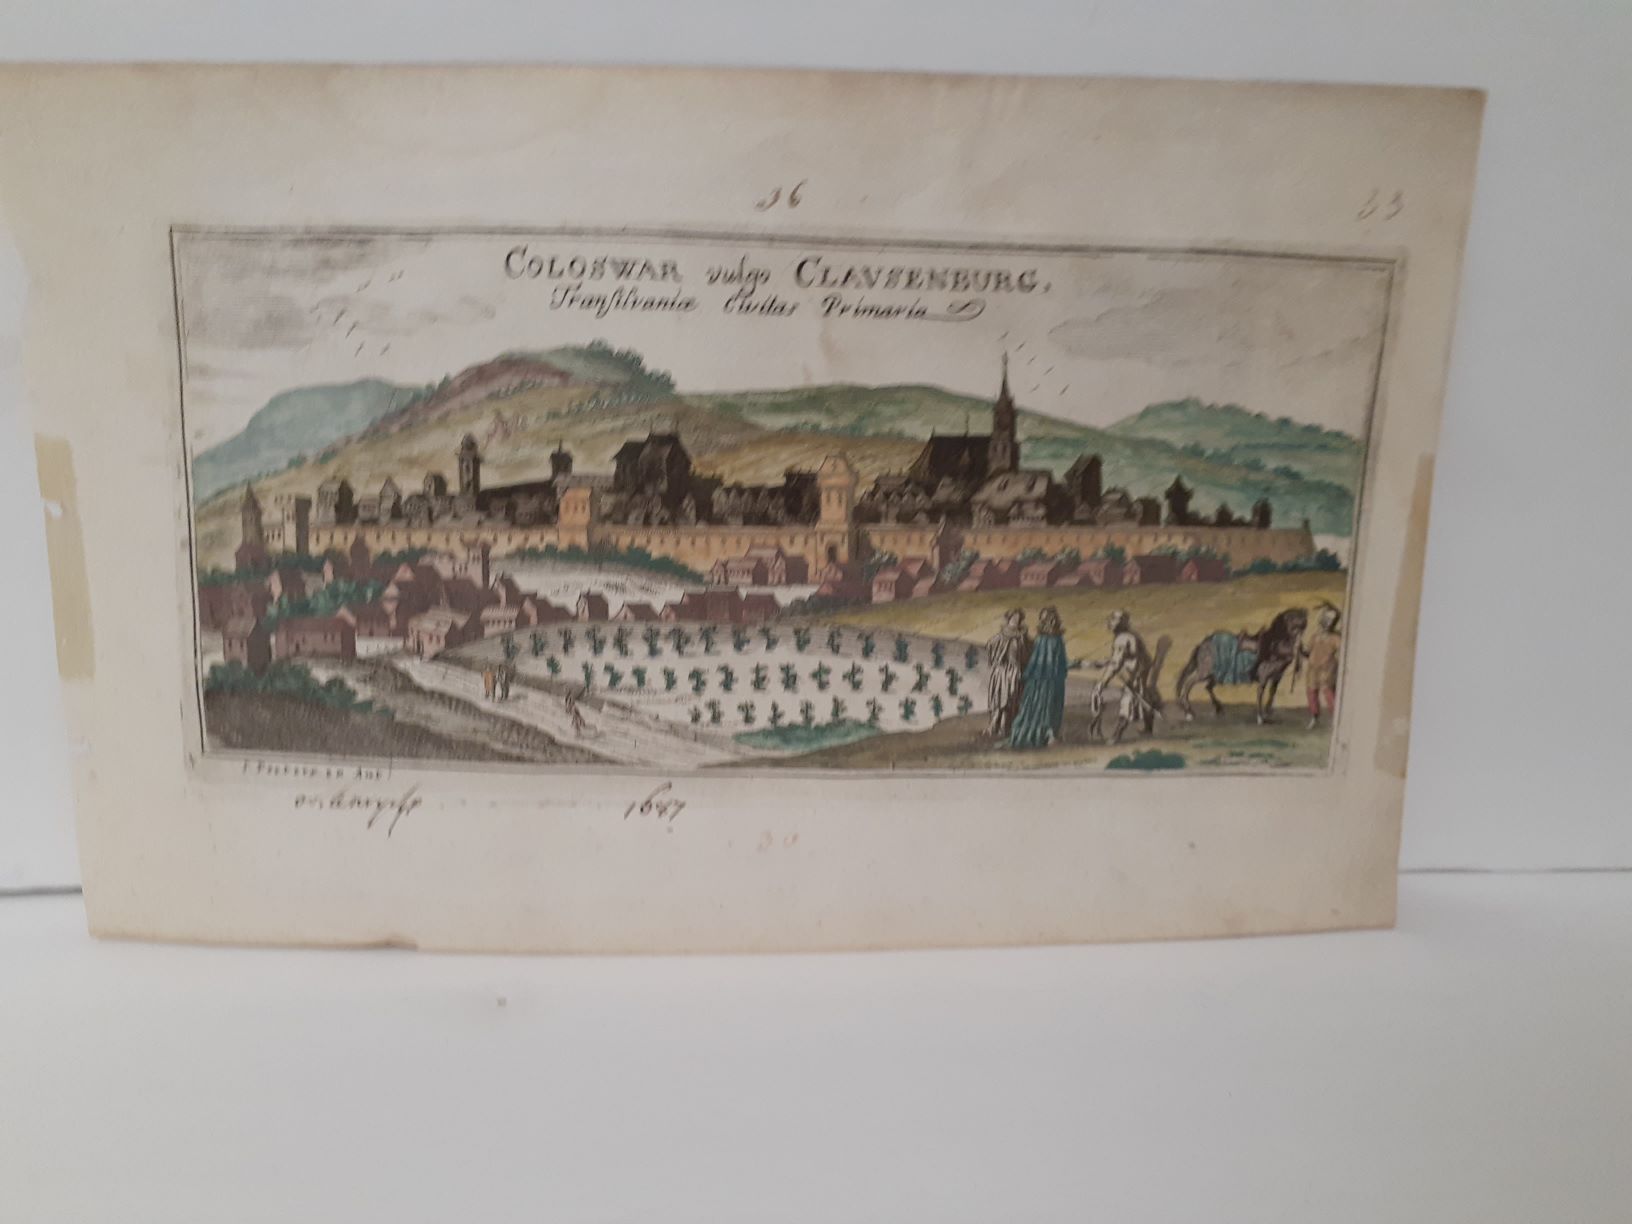 36
33
COLOSWAR vulgo CLAVSENBURG,
Transilvaniæ Civitas Primaria
1687
30